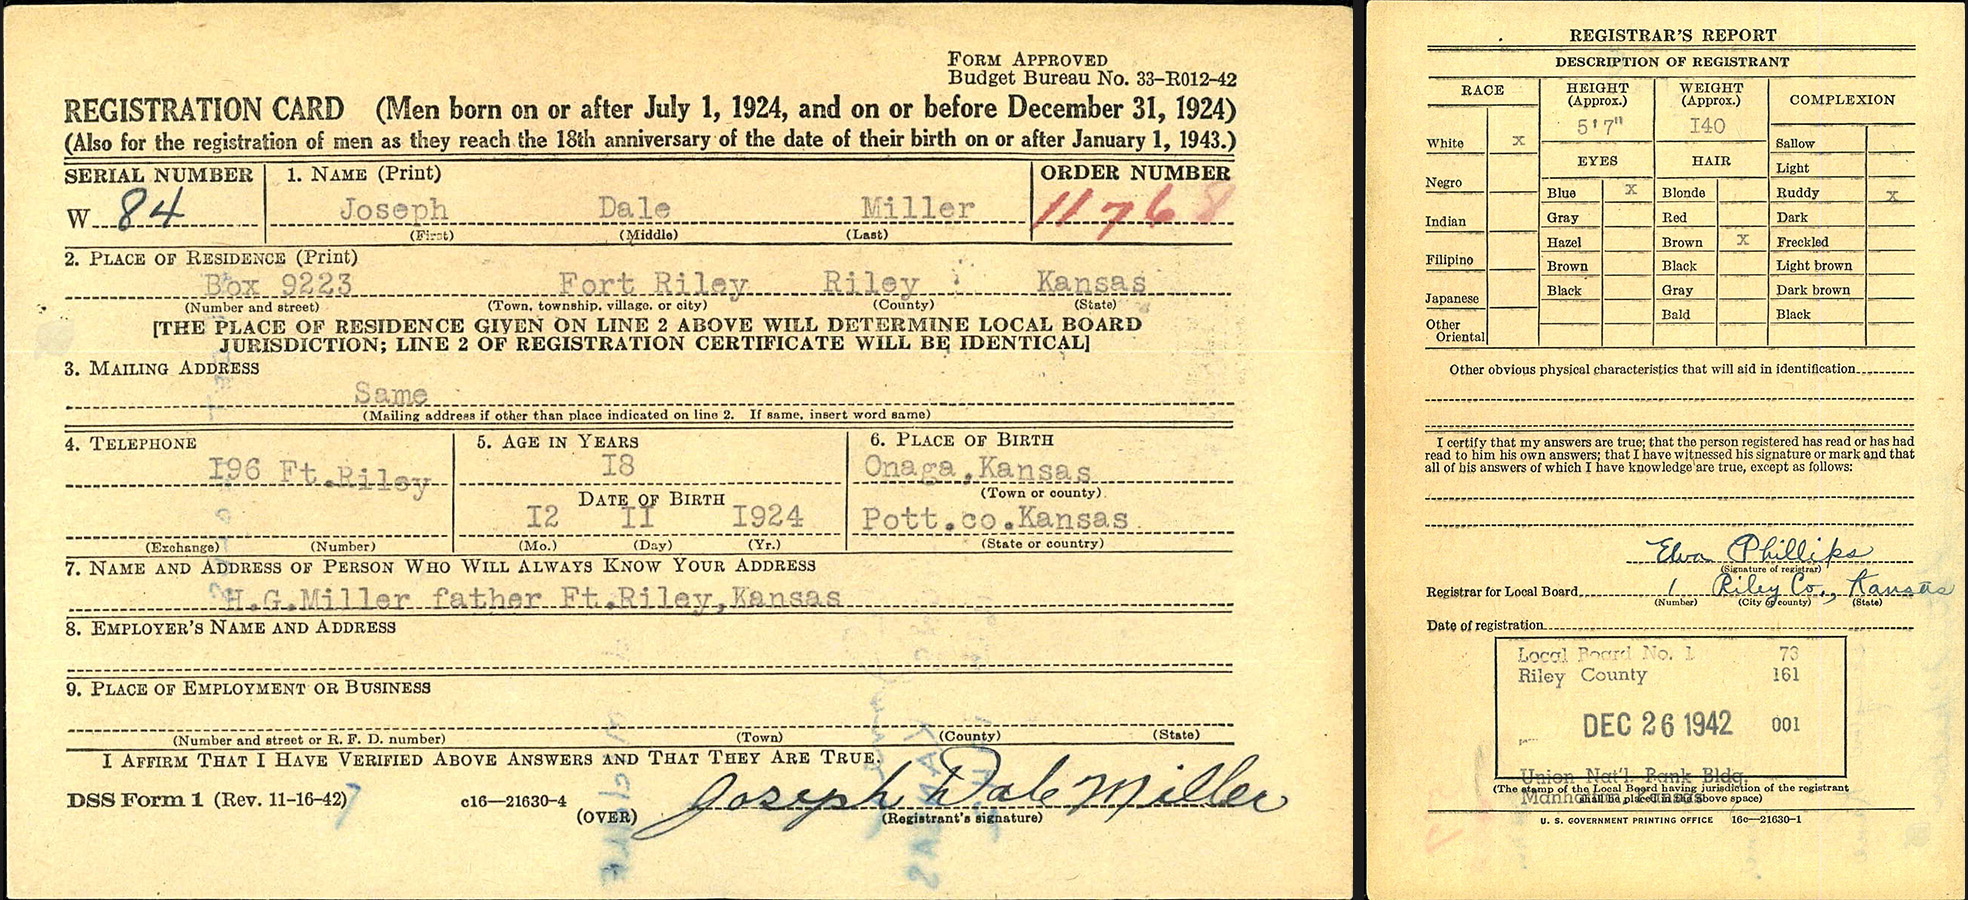 FORM APPROVED
Budget Bureau No. 33-R012-42
REGISTRATION CARD (Men born on or after July 1, 1924, and on or before December 31, 1924)
(Also for the registration of men as they reach the 18th anniversary of the date of their birth on or after January 1, 1943.)
SERIAL NUMBER 1. NAME (Print) ORDER NUMBER
W 84 Joseph Dale Miller 11768
(First) (Middle) (Last)
2. PLACE OF RESIDENCE (Print)
Box 9223 Fort Riley Riley Kansas
(Number and street) (Town, township, village, or city) (County) (State)
[THE PLACE OF RESIDENCE GIVEN ON LINE 2 ABOVE WILL DETERMINE LOCAL BOARD
JURISDICTION; LINE 2 OF REGISTRATION CERTIFICATE WILL BE IDENTICAL]
3. MAILING ADDRESS
Same
(Mailing address if other than place indicated on line 2. If same, insert word same)
4. TELEPHONE 5. AGE IN YEARS 6. PLACE OF BIRTH
I96 Ft.Riley I8 Onaga,Kansas
(Town or county)
DATE OF BIRTH
I2 II I924 Pott.co.Kansas
(Exchange) (Number) (Mo.) (Day) (Yr.) (State or country)
7. NAME AND ADDRESS OF PERSON WHO WILL ALWAYS KNOW YOUR ADDRESS
H.G.Miller father Ft.Riley,Kansas
8. EMPLOYER'S NAME AND ADDRESS
9. PLACE OF EMPLOYMENT OR BUSINESS
(Number and street or R. F. D. number) (Town) (County) (State)
I AFFIRM THAT I HAVE VERIFIED ABOVE ANSWERS AND THAT THEY ARE TRUE.
Joseph Dale Miller
DSS Form 1 (Rev. 11-16-42) c16—21630-4 (OVER) (Registrant's signature)
REGISTRAR'S REPORT
DESCRIPTION OF REGISTRANT
RACE HEIGHT (Approx.) WEIGHT (Approx.) COMPLEXION
5'7" I40
White x EYES HAIR Sallow
Light
Negro Blue x Blonde Ruddy x
Indian Gray Red Dark
Hazel Brown x Freckled
Filipino Brown Black Light brown
Japanese Black Gray Dark brown
Other Oriental Bald Black
Other obvious physical characteristics that will aid in identification
I certify that my answers are true; that the person registered has read or has had
read to him his own answers; that I have witnessed his signature or mark and that
all of his answers of which I have knowledge are true, except as follows:
Elva Phillips
(Signature of registrar)
Registrar for Local Board 1 Riley Co., Kansas
(Number) (City or county) (State)
Date of registration
Local Board No. 1 73
Riley County 161
DEC 26 1942 001
Union Nat'l. Bank Bldg.
(The stamp of the Local Board having jurisdiction of the registrant
Manhattan, Kansas
shall be placed in the above space)
U. S. GOVERNMENT PRINTING OFFICE 16c—21630-1